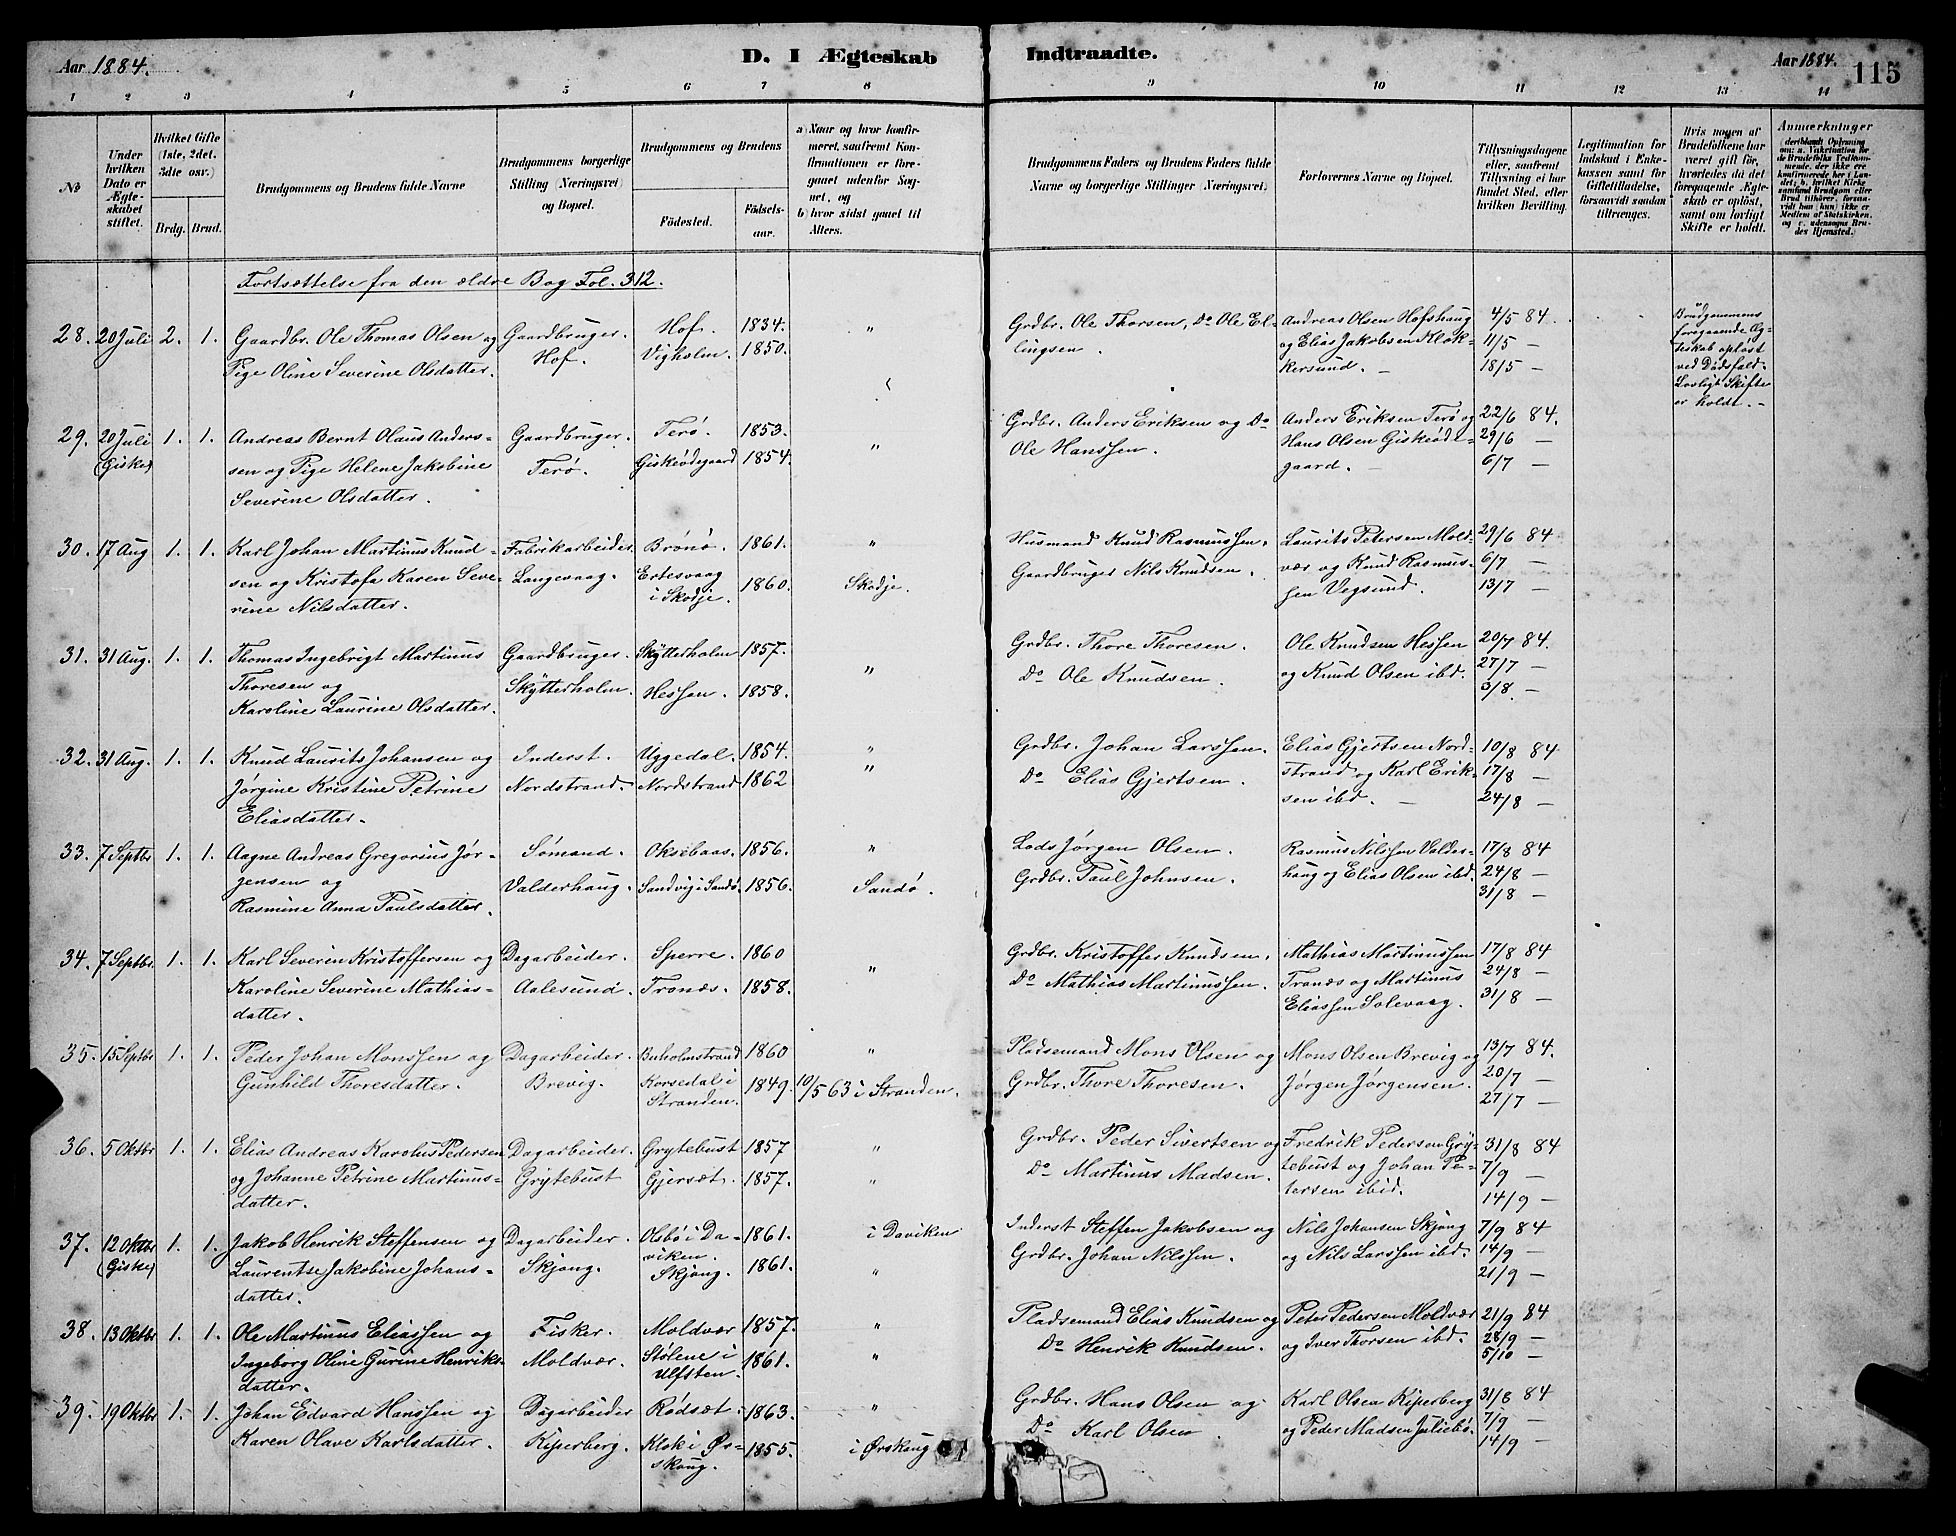 Aar 1884.
D. I Ægteskab
Indtraadte.
Aar 1884.
115
1 2 3 4 5 6 7 8 9 10 11 12 13 14
No
Under hvilken Dato er Ægteskabet stiftet.
Hvilket Gifte (1ste, 2det, 3die osv.)
Brdg. Brud.
Brudgommens og Brudens fulde Navne
Brudgommens borgerlige Stilling (Næringsvei) og Bopæl.
Brudgommens og Brudens
Fødested.
Fødselsaar.
a) Naar og hvor konfirmeret, saafremt Konfirmationen er foregaaet udenfor Sognet, og
b) hvor sidst gaaet til Alters.
Brudgommens Faders og Brudens Faders fulde Navne og borgerlige Stillinger (Næringsvei)
Forlovernes Navne og Bopæl.
Tillysningsdagene eller, saafremt Tillysning ei har fundet Sted, efter hvilken Bevilling.
Legitimation for Indskud i Enkekassen samt for Giftetilladelse, forsaavidt saadan tiltrænges.
Hvis nogen af Brudefolkene har været gift før, hvorledes da det foregaaende Ægteskab er opløst, samt om lovligt Skifte er holdt.
Anmærkninger
(deriblandt Oplysning om: a. Vakcination for de Brudefolks Vedkommende, der ikke ere konfirmerede her i Landet; b. hvilket Kirkesamfund Brudgom eller Brud tilhører, forsaavidt han (hun) ikke er Medlem af Statskirken, og c. udensogns Brudes Hjemsted.)
Fortsættelse fra den ældre Bog Fol. 312.
28. 20 Juli 2. 1. Gaardbr. Ole Thomas Olsen og Gaardbruger. Hof. 1834. " Grdbr. Ole Thorsen, Do Ole El- Andreas Olsen Hofshaug 4/5 84. Brudgommens
Pige Oline Severine Olsdatter. Hof. Vigholm. 1850. lingsen. og Elias Jakobsen Klok- 11/5 — foregaaende Æg-
kersund. — 18/5 — teskab opløst
ved Dødsfald.
Lovligt Skifte
er holdt. —
29. 20 Juli 1. 1. Andreas Bernt Olaus Anders- Gaardbruger. Terø. 1853. " Grdbr. Anders Eriksen og Do Anders Eriksen Terø og 22/6 84.
(Giske) sen og Pige Helene Jakobine Terø. Giskeødegaard 1854. Ole Hanssen. Hans Olsen Giskeøde- 29/6 —
Severine Olsdatter. gaard. — 6/7 —
30. 17 Aug 1. 1. Karl Johan Martinus Knud- Fabrikarbeider. Brønø. 1861. " Husmand Knud Rasmussen. Laurits Petersen Mold- 29/6 84.
sen og Kristofa Karen Seve- Langevaag. Ertesvaag i Skodje. 1860. Skodje. Gaardbruger Nils Knudsen. vær og Knud Rasmus- 6/7 —
rine Nilsdatter. sen Vegsund. 13/7 —
31. 31 Aug. 1. 1. Thomas Ingebrigt Martinus Gaardbruger. Skytterholm 1857. " Grdbr. Thore Thoresen. Ole Knudsen Hessen 20/7 84.
Thoresen og Skytterholm. Hessen. 1858. Do Ole Knudsen. og Knud Olsen ibd. 27/7 —
Karoline Laurine Olsdatter. 3/8. —
32. 31 Aug. 1. 1. Knud Laurits Johansen og Inderst. Uggedal. 1854. " Grdbr. Johan Larssen. Elias Gjertsen Nord- 10/8 84
Jørgine Kristine Petrine Nordstrand. Nordstrand 1862 " Do Elias Gjertsen. strand og Karl Erik- 17/8 —
Eliasdatter. sen ibd. — 24/8 —
33. 7 Septbr 1. 1. Aagne Andreas Gregorius Jør- Sømand. Oksebaas. 1856. " Lods Jørgen Olsen. Rasmus Nilssen Valder- 17/8 84
gensen og Valderhaug. Sandvig i Sandø. 1856. Sandø. Grdbr. Paul Johnsen. haug og Elias Olsen ibd. 24/8 —
Rasmine Anna Paulsdatter. 31/8 —
34. 7 Septbr. 1. 1. Karl Severin Kristoffersen og Dagarbeider. Sperre. 1860 " Grdbr. Kristoffer Knudsen. Mathias Martinussen 17/8 84
Karoline Severine Mathias- Aalesund. Tranæs. 1858. Do Mathias Martinussen. Tranæs og Martinus 24/8 —
datter. Eliassen Solevaag. 31/8 —
35. 15 Septbr 1. 1. Peder Johan Monssen og Dagarbeider. Buholmstrand 1860 " Pladsemand Mons Olsen og Mons Olsen Brevig og 13/7 84.
Gunhild Thoresdatter. Brevig. Korsedal i Stranden. 1849. 10/5 63 i Stranden. Grdbr. Thore Thoresen. Jørgen Jørgensen. 20/7 —
27/7 —
36. 5 Oktbr 1. 1. Elias Andreas Karolus Pedersen Dagarbeider. Grytebust 1857 " Grdbr. Peder Sivertsen og Fredrik Pedersen Gry- 31/8 84
og Johanne Petrine Martinus- Grytebust Gjersæt. 1857. " Do Martinus Madsen. tebust og Johan Pe- 7/9 —
datter. tersen ibid. 14/9 —
37. 12 Oktbr 1. 1. Jakob Henrik Steffensen og Dagarbeider. Olsbø i Da- 1861. i Daviken Inderst Steffen Jakobsen og Nils Johansen Skjong 7/9 84
(Giske) Laurentse Jakobine Johans- Skjong. viken. Skjong. 1861. " Grdbr. Johan Nilssen. og Nils Larssen ibd. 14/9 —
datter. 21/9 —
38. 13 Oktbr 1. 1. Ole Martinus Eliassen og Fisker. Moldvær 1857. " Pladsemand Elias Knudsen og Peter Pedersen Moldvær 21/9 84
Ingeborg Oline Gurine Henriks- Moldvær. Stølene i Ulfsten. 1861. " Do Henrik Knudsen. og Iver Thorsen ibd. 28/9 —
datter. 5/10 —
39. 19 Oktbr 1. 1. Johan Edvard Hanssen og Dagarbeider Rødsæt. 1863. " Grdbr. Hans Olsen og Karl Olsen Kiperberg 31/8 84
Karen Olave Karlsdatter. Kiperberg. Klok i Ør- skoug. 1855. i Ørskoug Do Karl Olsen. og Peder Madsen Juliebø. 7/9 —
14/9 —